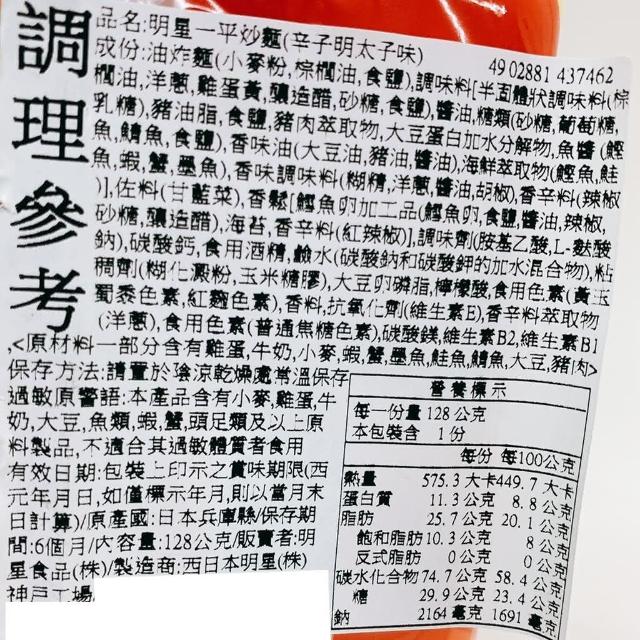 調理參考
品名:明星一平炒麵(辛子明太子味)
4902881 437462
成份:油炸麵(小麥粉,棕櫚油,食鹽),調味料[半固體狀調味料(棕
櫚油,洋蔥,雞蛋黃,釀造醋,砂糖,食鹽),醬油,糖類(砂糖,葡萄糖,
乳糖),豬油脂,食鹽,豬肉萃取物,大豆蛋白加水分解物,魚醬(鰹
魚,鯖魚,食鹽),香味油(大豆油,豬油,醬油),海鮮萃取物(鰹魚,鮭
魚,蝦,蟹,墨魚),香味調味料(糊精,洋蔥,醬油,胡椒),香辛料(辣椒
)],佐料(甘藍菜),香鬆[鱈魚卵加工品(鱈魚卵,食鹽,醬油,辣椒,
砂糖,釀造醋),海苔,香辛料(紅辣椒)],調味劑(胺基乙酸,L-麩酸
鈉),碳酸鈣,食用酒精,鹼水(碳酸鈉和碳酸鉀的加水混合物),粘
稠劑(糊化澱粉,玉米糖膠),大豆卵磷脂,檸檬酸,食用色素(黃玉
蜀黍色素,紅麴色素),香料,抗氧化劑(維生素E),香辛料萃取物
(洋蔥),食用色素(普通焦糖色素),碳酸鎂,維生素B2,維生素B1
,<原材料一部分含有雞蛋,牛奶,小麥,蝦,蟹,墨魚,鮭魚,鯖魚,大豆,豬肉>
保存方法:請置於陰涼乾燥處常溫保存
過敏原警語:本產品含有小麥,雞蛋,牛
奶,大豆,魚類,蝦,蟹,頭足類及以上原
料製品,不適合其過敏體質者食用
有效日期:包裝上印示之賞味期限(西
元年月日,如僅標示年月,則以當月末
日計算)/原產國:日本兵庫縣/保存期
間:6個月/內容量:128公克/販賣者:明
星食品(株)/製造商:西日本明星(株)
神戸工場
營養標示
每一份量 128 公克
本包裝含 1 份
每份 每100公克
熱量 575.3 大卡 449.7 大卡
蛋白質 11.3 公克 8.8 公克
脂肪 25.7 公克 20.1 公克
飽和脂肪 10.3 公克 8 公克
反式脂肪 0 公克 0 公克
碳水化合物 74.7 公克 58.4 公克
糖 29.9 公克 23.4 公克
鈉 2164 毫克 1691 毫克